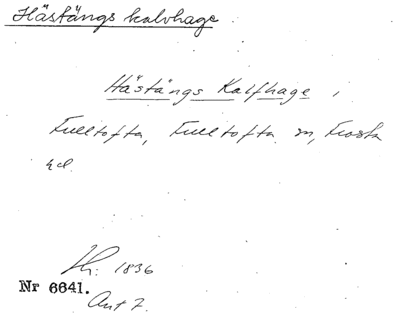 Hästängs kalvhage
Hästängs Kalfhage,
Fulltofta, Fulltofta sn, Frosta
hd
Lh: 1836
Nr 6641.
Akt 7.